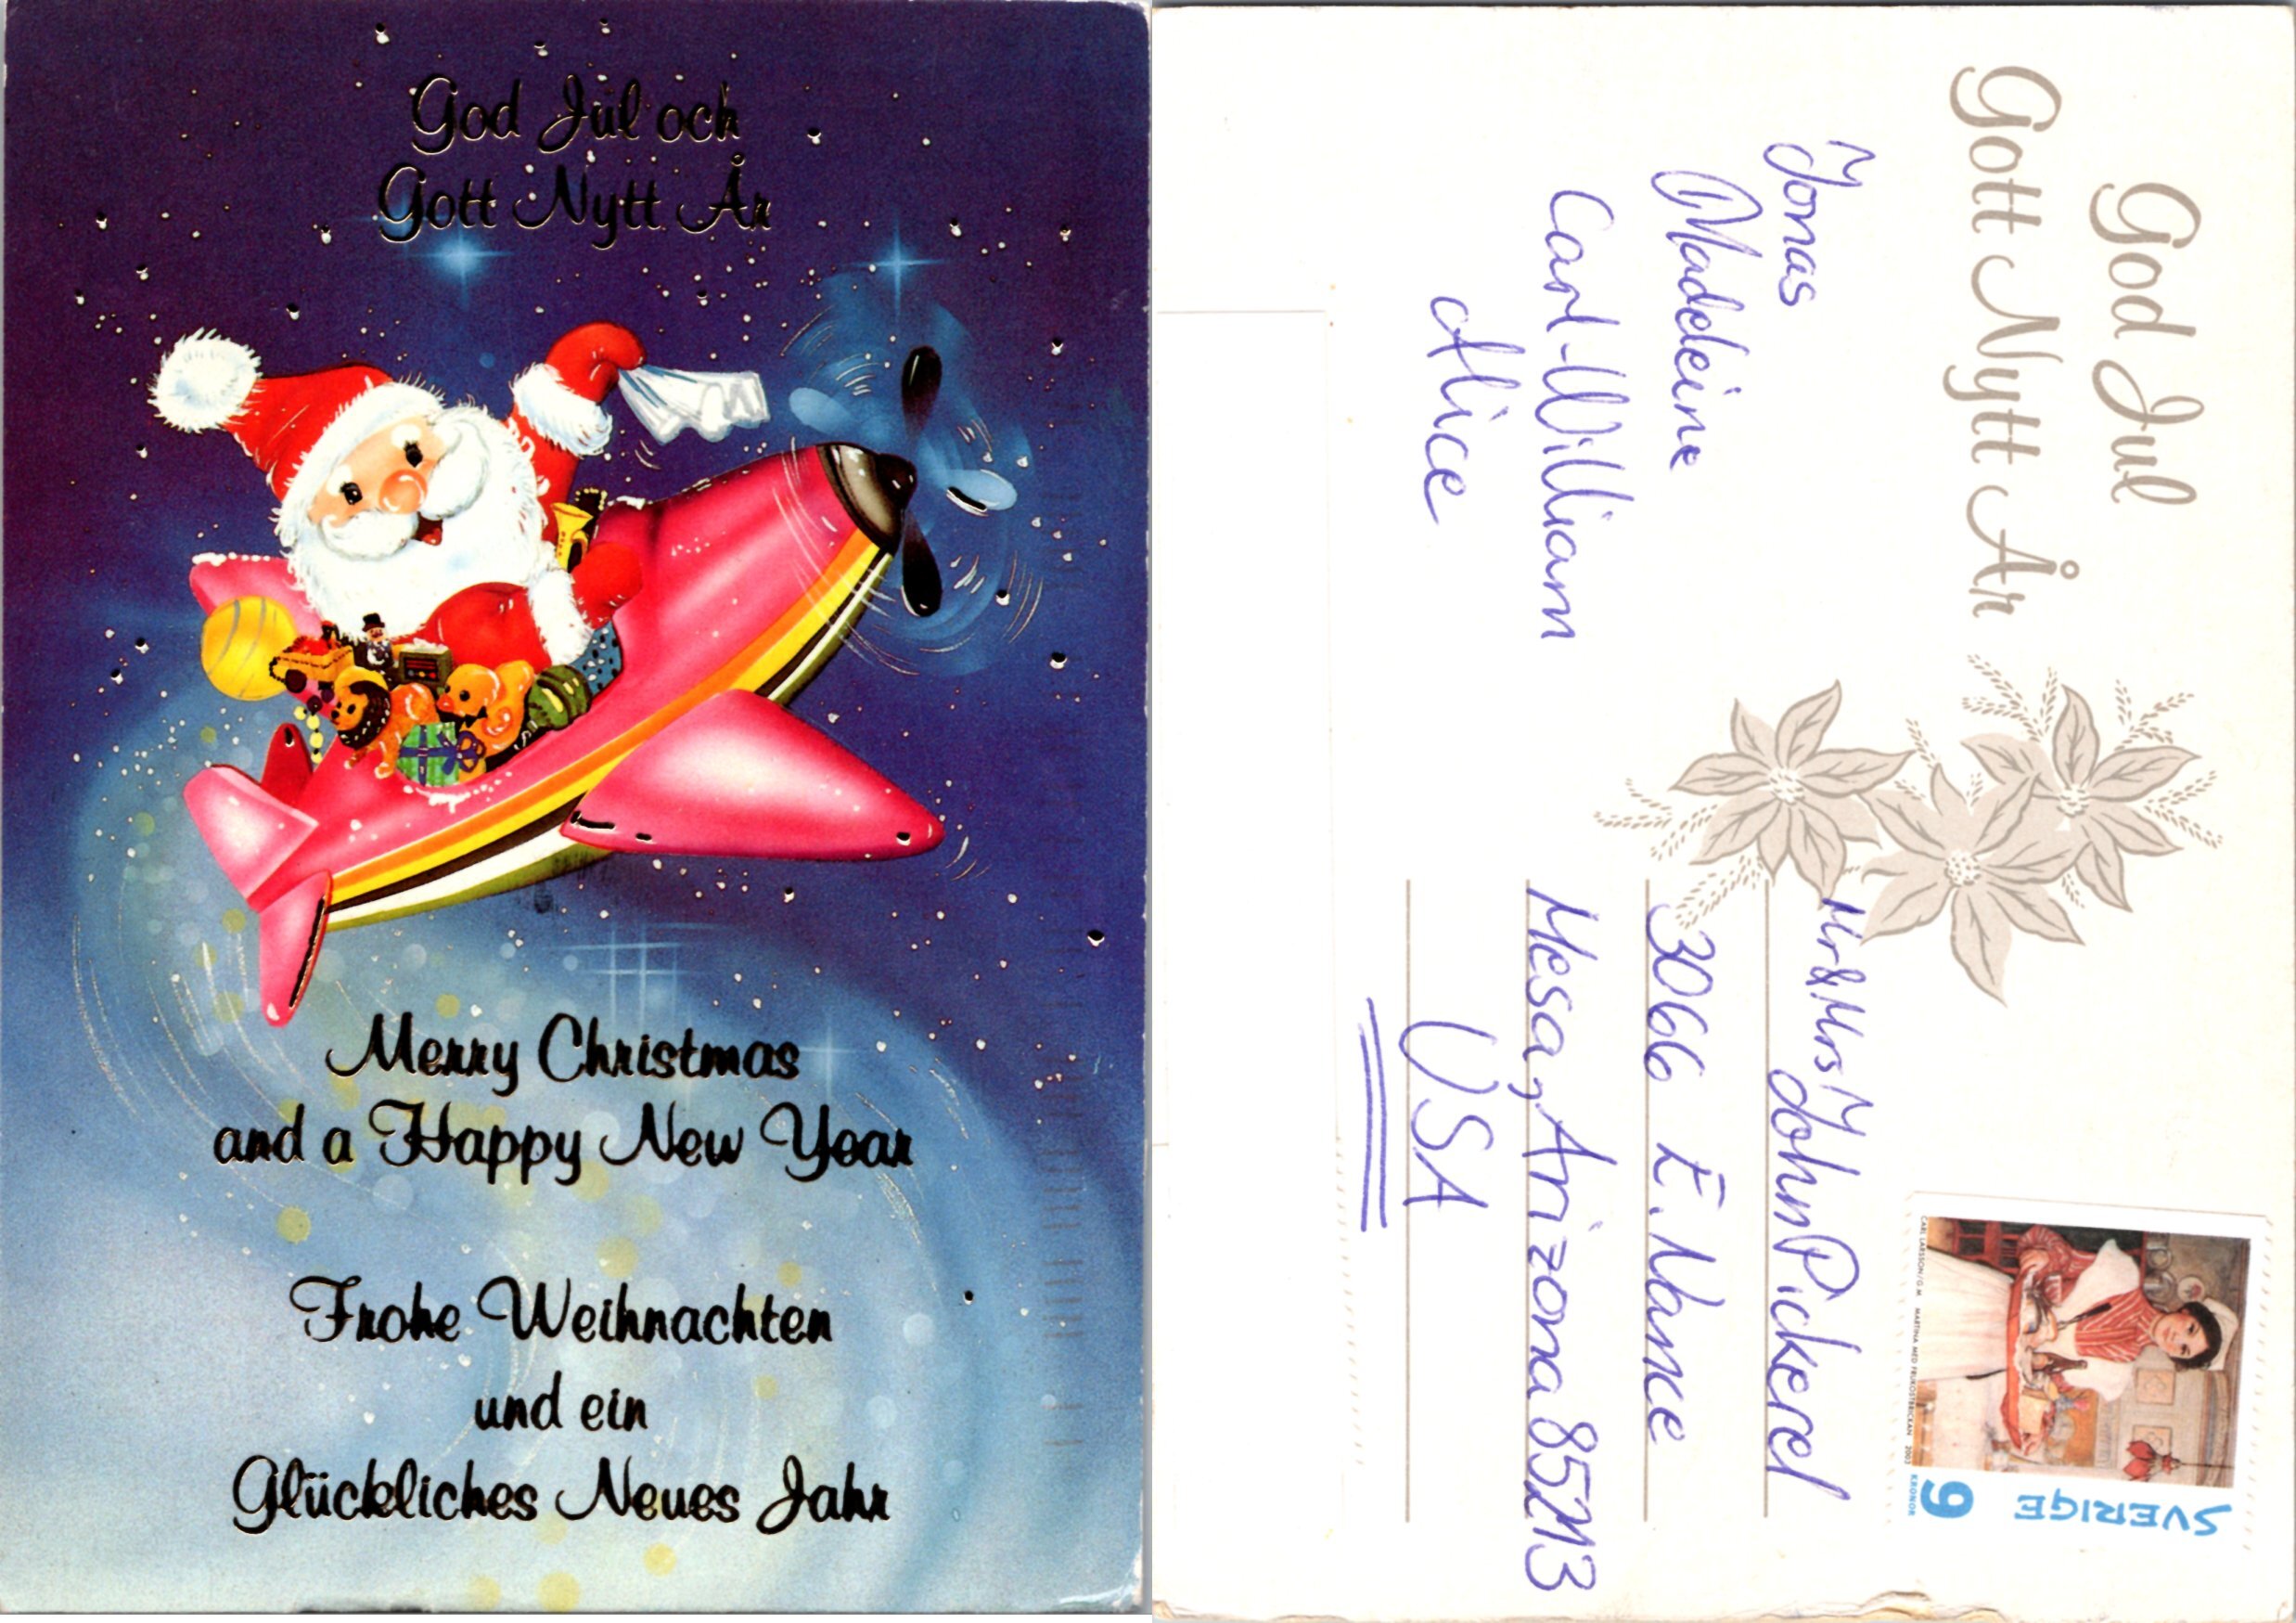 God Jul och
Gott Nytt År
Merry Christmas
and a Happy New Year
Frohe Weihnachten
und ein
Glückliches Neues Jahr
God Jul
Gott Nytt År
Jonas
Madeleine
Carl-William
Alice
Mr & Mrs John Pickerel
3066 E. Nance
Mesa, Arizona 85213
USA
SVERIGE
9
KRONOR
CARL LARSSON/G.M. MARTINA MED FRUKOSTBRICKAN 2003